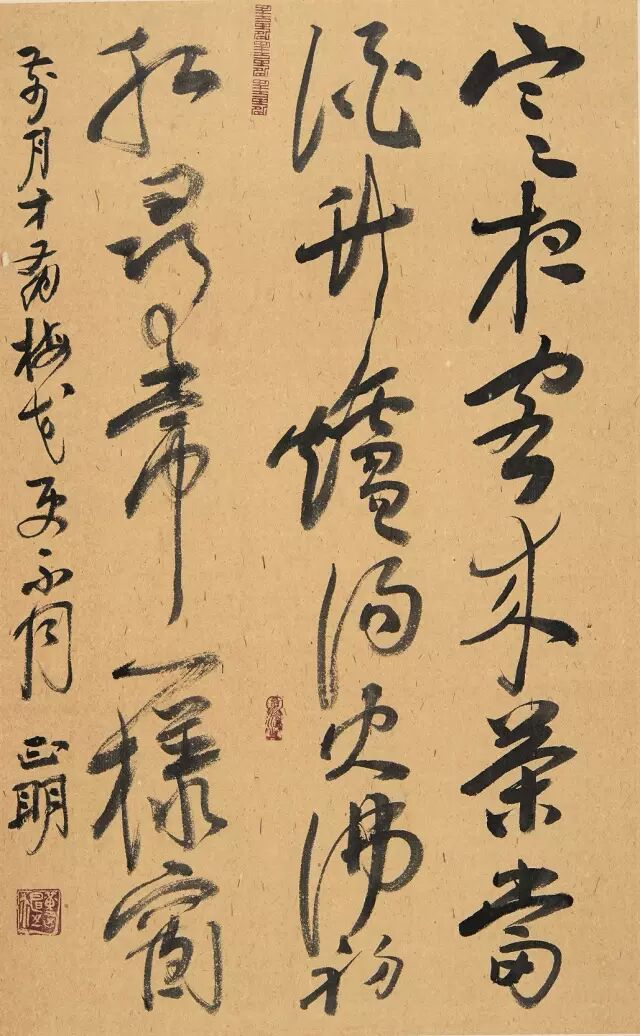 寒夜客來茶當
酒竹爐湯火沸初
紅尋常一樣窗
前月才有梅花更不同 正明